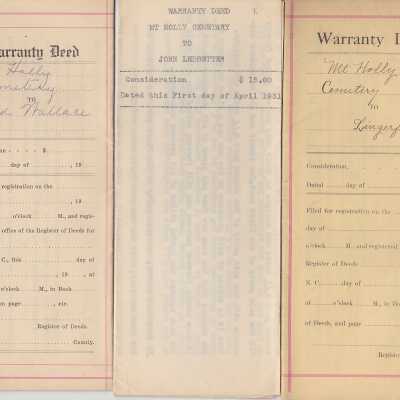 Warranty Deed
Holly
Cemetery
TO
Wallace
$
day of , 19
registration on the
, 19
o'clock M., and regis-
office of the Register of Deeds for
C., this day of
, 19 , at
o'clock M., in Book
on page , etc.
Register of Deeds.
County.
WARRANTY DEED
MT HOLLY CEMETARY
TO
JOHN LEDBETTER
Consideration $ 15.00
Dated this First day of April 1931
Warranty D
Mt Holly
Cemetery
TO
Consideration,
Dated day of
Filed for registration on the
day of
o'clock M. and registered
Register of Deeds
N. C., day of
at o'clock M., in Book
of Deeds, and page
Register